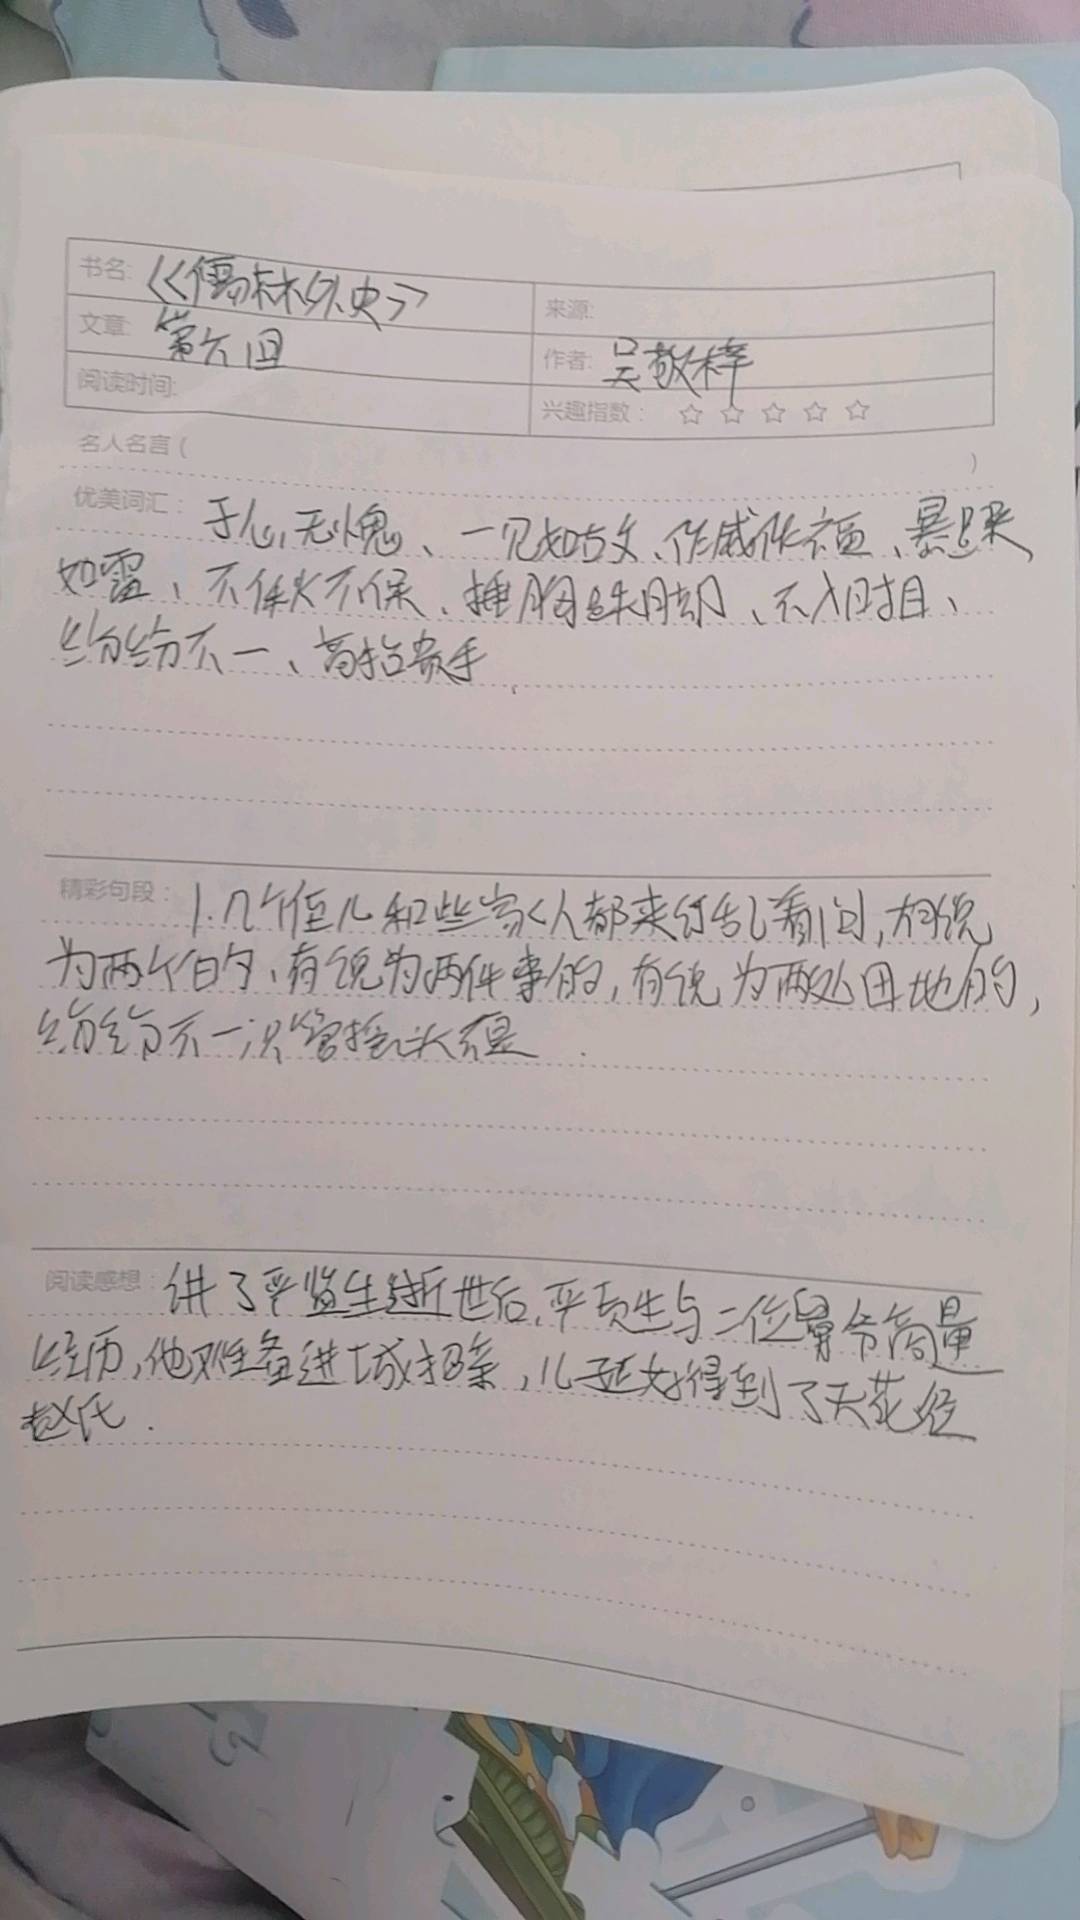 书名:《儒林外史》
来源:
文章: 第六回
作者: 吴敬梓
阅读时间:
兴趣指数: ☆ ☆ ☆ ☆ ☆
名人名言 ( )
优美词汇: 于心无愧、一见如故、作威作福、暴跳
如雷、不瞅不倸、捶胸跌脚、不入时目、
纷纷不一、高抬贵手
精彩句段: 1.几个侄儿和些家人都来讧乱着问,有说
为两个人的,有说为两件事的,有说为两处田地的,
纷纷不一,只管摇头不是
阅读感想: 讲了严监生逝世后,严贡生与二位舅爷商量
经历,他准备进城招亲,儿子
赵氏.